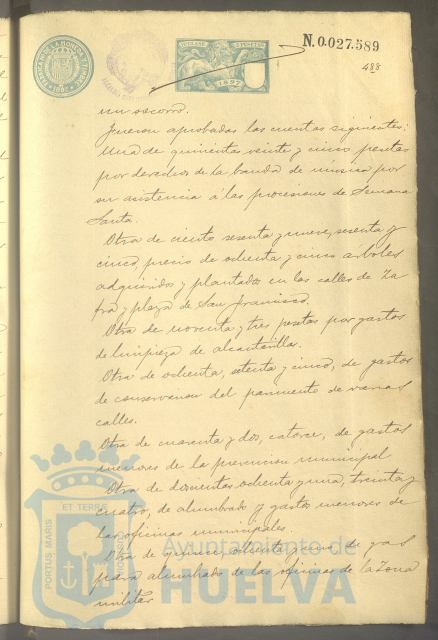 N.0.027.589
488
un socorro.
Fueron aprobadas las cuentas siguientes:
Una de quinientas veinte y cinco pesetas
por derechos de la banda de música por
su asistencia á las procesiones de Semana
Santa.
Otra de ciento sesenta y nueve, sesenta y
cinco, precio de ochenta y cinco árboles
adquiridos y plantados en las calles de Za
fra y plaza de San Francisco.
Otra de noventa y tres pesetas por gastos
de limpieza de alcantarillas.
Otra de ochenta, setenta y cinco, de gastos
de conservacion del pavimento de varias
calles.
Otra de cuarenta y dos, catorce, de gastos
menores de la prevencion municipal
Otra de doscientas ochenta y una, treinta y
cuatro, de alumbrado y gastos menores de
las oficinas municipales.
Otra de quince, ochenta y uno de gas
para alumbrado de las oficinas de la Zona
militar
Ayuntamiento de
HUELVA
PORTUS MARIS
ET TERRE